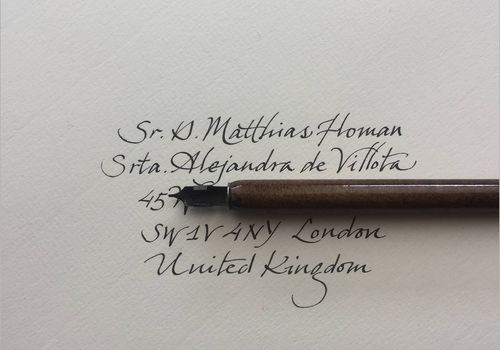 Sr. D. Matthias Homan
Srta. Alejandra de Villota
SW1V 4NY London
United Kingdom